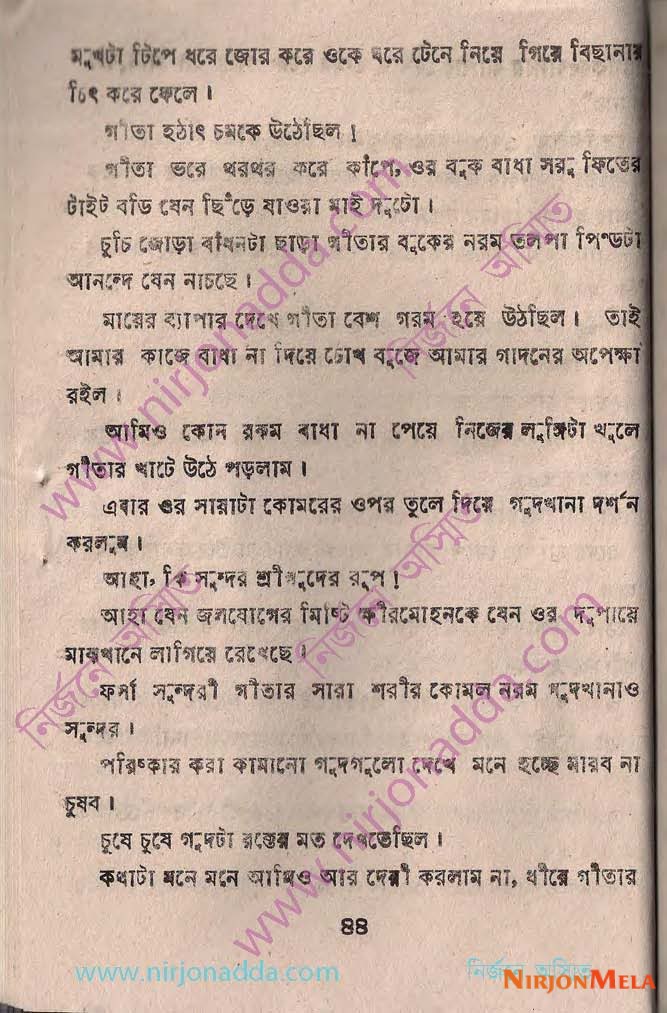 মুখটা টিপে ধরে জোর করে ওকে ঘরে টেনে নিয়ে গিয়ে বিছানায়
চিৎ করে ফেলে।
গীতা হঠাৎ চমকে উঠেছিল!
গীতা ভরে থরথর করে কাঁপে, ওর বুক বাধা সরু ফিতের
টাইট বডি যেন ছিঁড়ে যাওরা মাই দুটো।
চুচি জোড়া বাঁধনটা ছাড়া গীতার বুকের নরম তলপা পিন্ডটা
আনন্দে যেন নাচছে।
মায়ের ব্যাপার দেখে গীতা বেশ গরম হয়ে উঠছিল। তাই
আমার কাজে বাধা না দিয়ে চোখ বুজে আমার গাদনের অপেক্ষা
রইল।
আমিও কোন রকম বাধা না পেয়ে নিজের লুঙ্গিটা খুলে
গীতার খাটে উঠে পড়লাম।
এবার ওর সায়াটা কোমরের ওপর তুলে দিয়ে গুদখানা দর্শন
করলাম।
আহা, কি সুন্দর শ্রীগুদের রূপ!
আহা যেন জলযোগের মিষ্টি ক্ষীরমোহনকে যেন ওর দুপায়ে
মাঝখানে লাগিয়ে রেখেছে।
ফর্সা সুন্দরী গীতার সারা শরীর কোমল নরম গুদখানাও
সুন্দর।
পরিষ্কার করা কামানো গুদগুলো দেখে মনে হচ্ছে মারব না
চুষব।
চুষে চুষে গুদটা রক্তের মত দেখতেছিল।
কথাটা মনে মনে আমিও আর দেরী করলাম না, ধীরে গীতার
৪৪
www.nirjonadda.com
নির্জনে অস্মিত
www.nirjonadda.com
নির্জনে অস্মিত
নির্জনে অস্মিত
www.nirjonadda.com
নির্জনে অস্মিত
NIRJONMELA